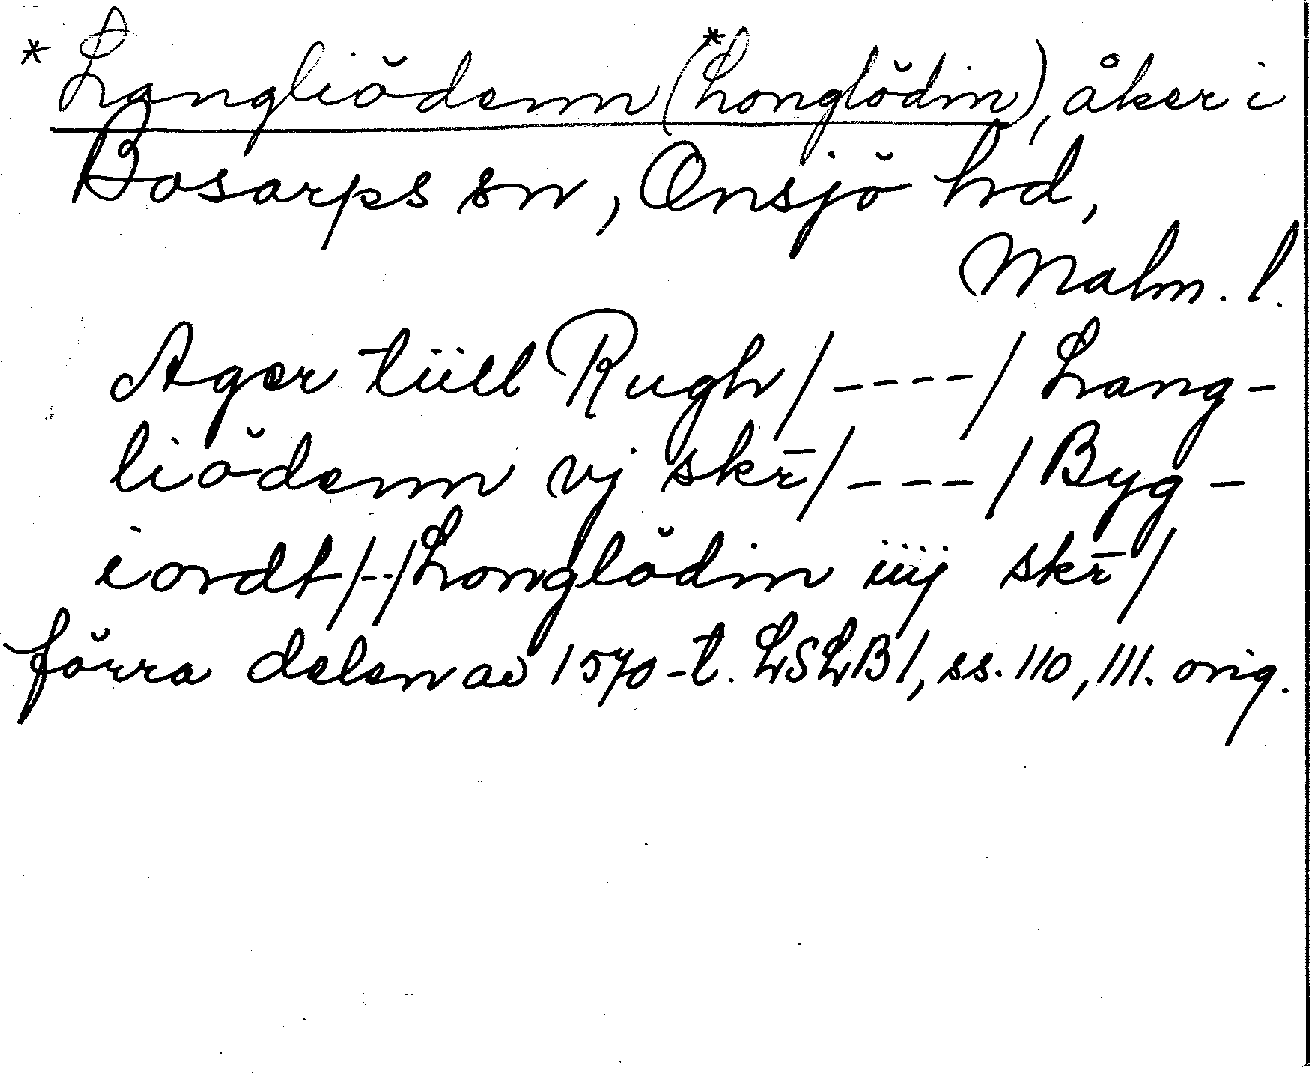 * Langliödenn (*Longlödin), åker i
Bosarps sn, Onsjö hd,
Malm. l.
Ager tüll Rugh/----/ Lang-
liödenn vj skr̄/---/ Byg-
iordt/--/Longlödin iiij skr̄/
förra delen av 1570-t. LSLB1, ss. 110, 111. orig.